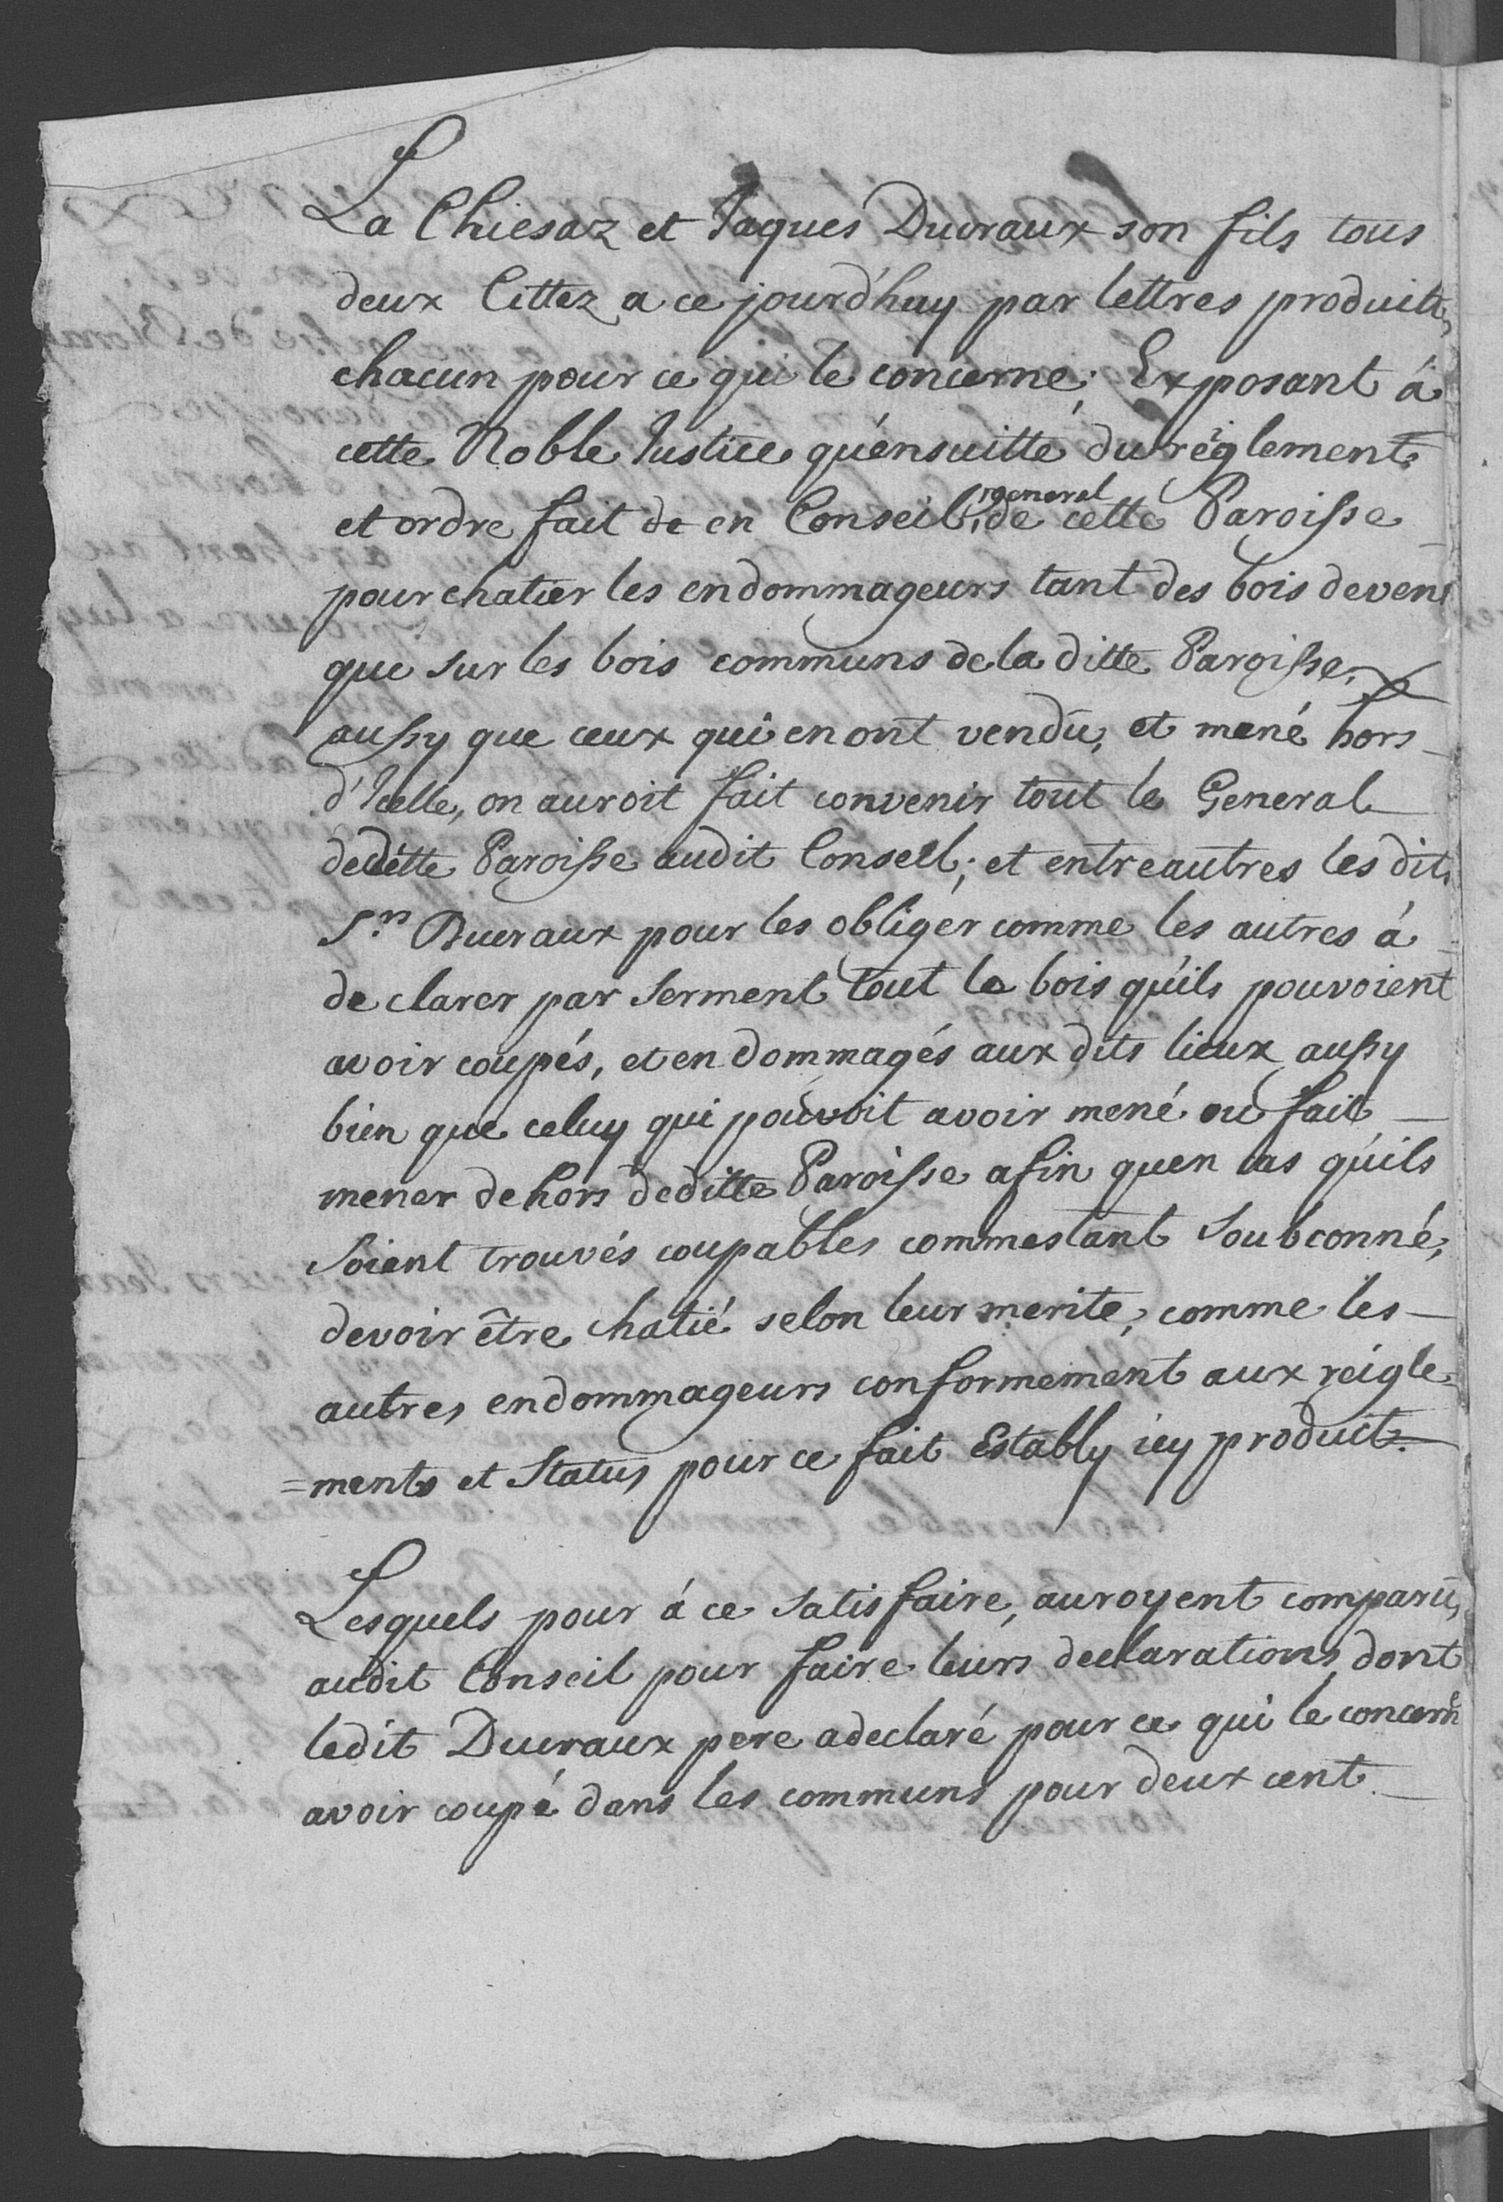 La Chiesaz et Jaques Ducraux son fils tous
deux Cittez a ce jourd'huy par lettres produites,
chacun pour ce qui le concerne; Exposant á
cette Noble Justice qu'ensuitte du réglement
et ordre fait de en Conseil, general de cette Paroisse
pour chatier les endommageurs tant des bois devens
que sur les bois communs de la ditte Paroisse,
aussy que ceux qui en ont vendu, et mené hors
d'Icelle, on auroit fait convenir tout le General
de ditte Paroisse audit Conseil; et entreautres les dits
Srs Ducraux pour les obliger comme les autres á
declarer par serment tout le bois qu'ils pouvoient
avoir coupés, et endommagés aux dits lieux aussy
bien que celuy qui pouvoit avoir mené ou fait
mener dehors de ditte Paroisse afin quen cas qu'ils
soient trouvés coupables commestant soubconné,
devoir être chatié selon leur merite, comme les
autres endommageurs conformement aux réigle=
=ments et status pour ce fait Estably icy produit.
Lesquels pour á ce satisfaire, auroyent comparus
audit Conseil pour faire leurs declarations, dont
ledit Ducraux pere a declaré pour ce qui le concerne
avoir coupé dans les communs pour deux cent